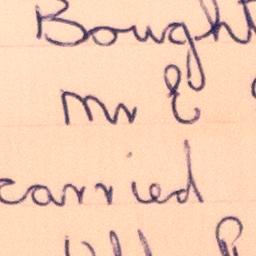 Bought
Mr E
carried